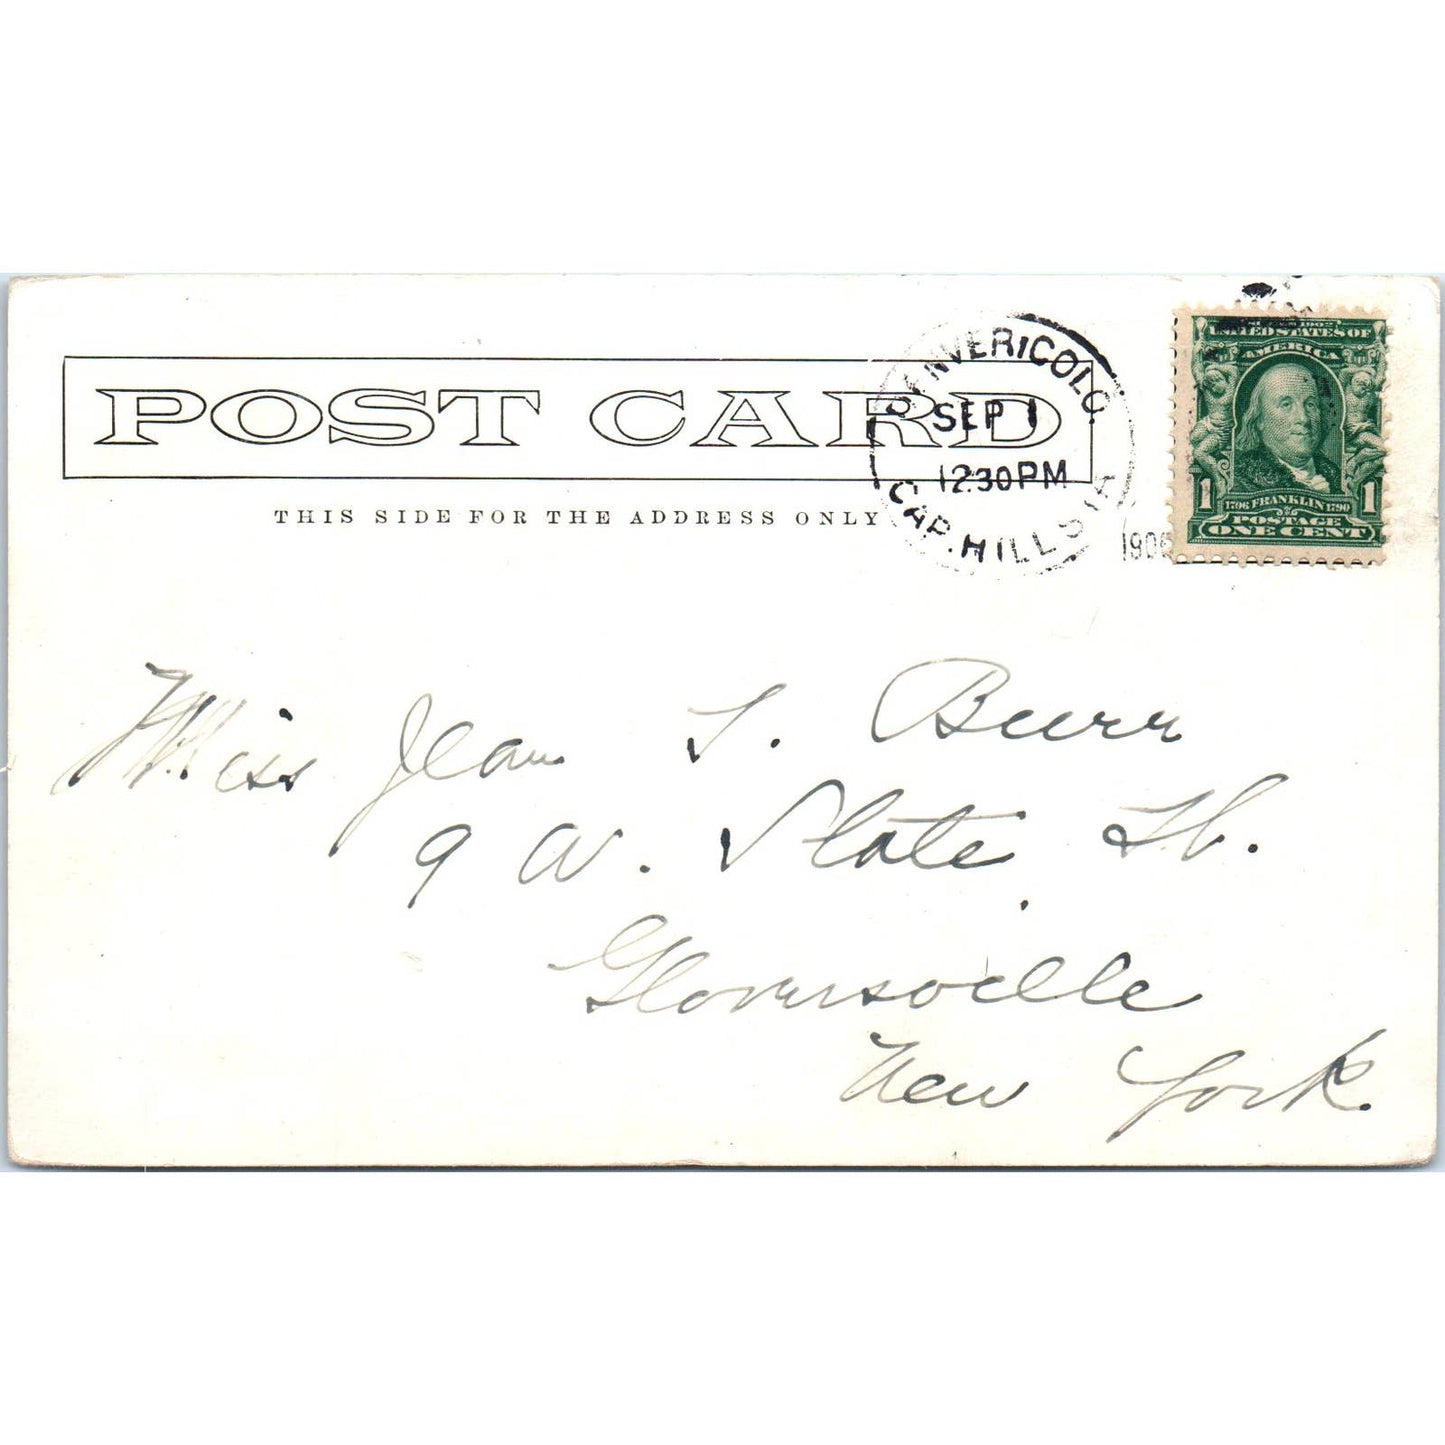 POST CARD
THIS SIDE FOR THE ADDRESS ONLY
DENVER, COLO.
SEP 1
12 30 PM
CAP. HILL STA
1906
SERIES 1902
UNITED STATES OF
AMERICA
1 1706 FRANKLIN 1790 1
POSTAGE
ONE CENT
Miss Jean S. Burr
9 W. State St.
Gloversville
New York.